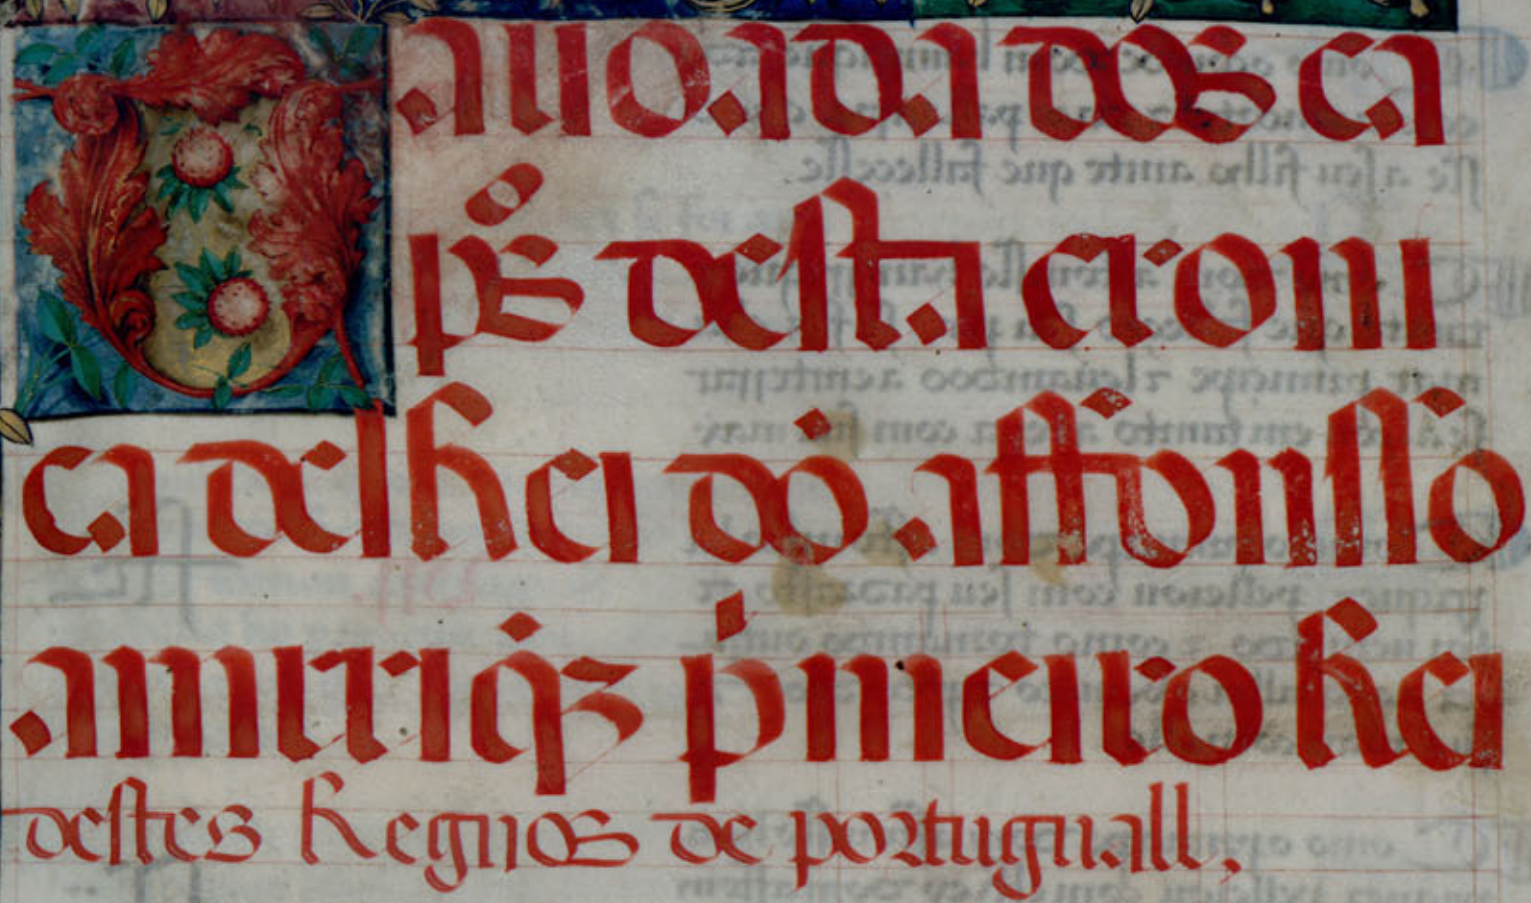 Tauoada dos ca
pᵒs desta croni
ca delRei dõ affonsso
anrriq̃z p̍meiro Rei
destes Regnos de portuguall,